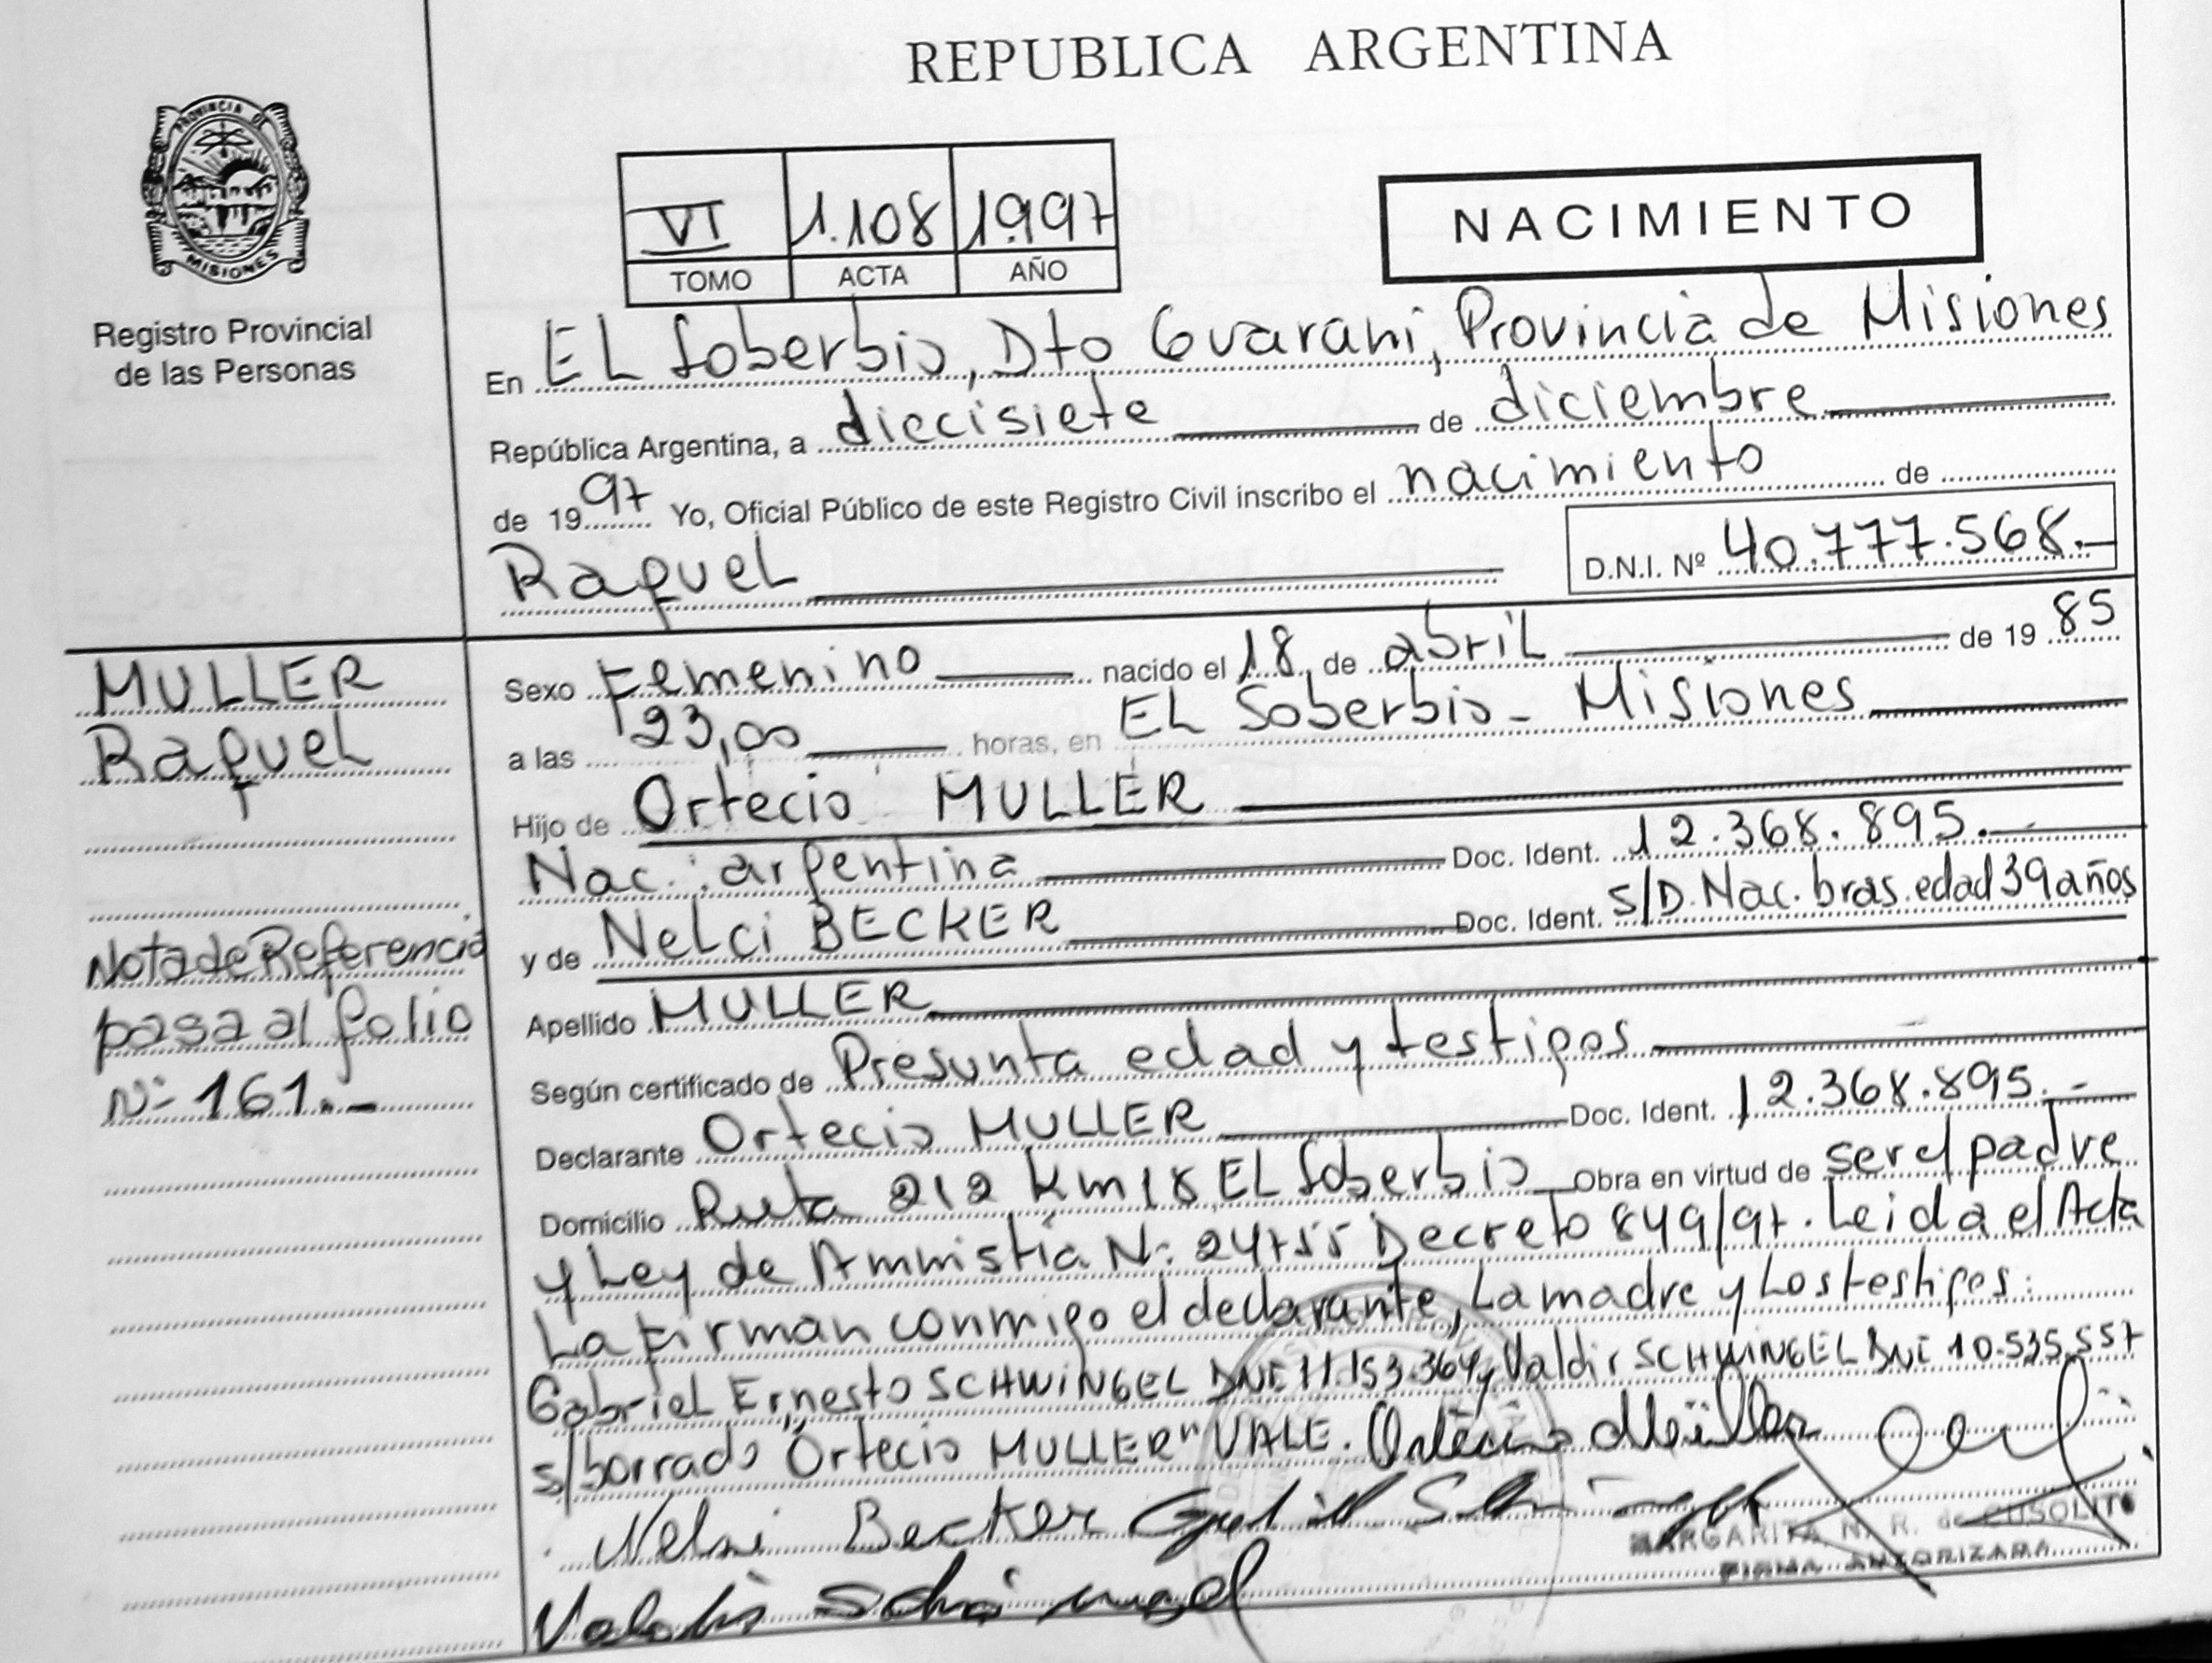 REPUBLICA ARGENTINA
PROVINCIA DE
MISIONES
Registro Provincial
de las Personas
VI 1.108 1997
TOMO ACTA AÑO
NACIMIENTO
En EL Soberbio, Dto Guarani, Provincia de Misiones
República Argentina, a diecisiete de diciembre
de 1997 Yo, Oficial Público de este Registro Civil inscribo el nacimiento de
Raquel
D.N.I. Nº 40.777.568.-
MULLER
Raquel
Nota de Referencia
pasa al folio
Nº 161.-
Sexo Femenino nacido el 18 de abril de 1985
a las 23,00 horas, en EL Soberbio - Misiones
Hijo de Ortecio MULLER
Nac.: argentina Doc. Ident. 12.368.895.-
y de Nelci BECKER Doc. Ident. S/D. Nac. bras. edad 39 años
Apellido MULLER
Según certificado de Presunta edad y testigos
Declarante Ortecio MULLER Doc. Ident. 12.368.895.-
Domicilio Ruta 212 Km 18 EL Soberbio Obra en virtud de ser el padre
y Ley de Amnistía Nº 24755 Decreto 849/97. Leida el Acta
La firman conmigo el declarante, La madre y Los testigos:
Gabriel Ernesto SCHWINGEL DNI 11.153.364 y Valdir SCHWINGEL DNI 10.535.557
s/borrado "Ortecio MULLER" VALE. Ortecio Müller
Nelsi Becker
MARGARITA N. R. de CUSOLITO
FIRMA AUTORIZADA